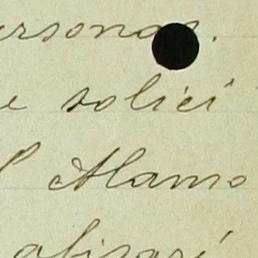 ersonas.
e solici
l Alamo